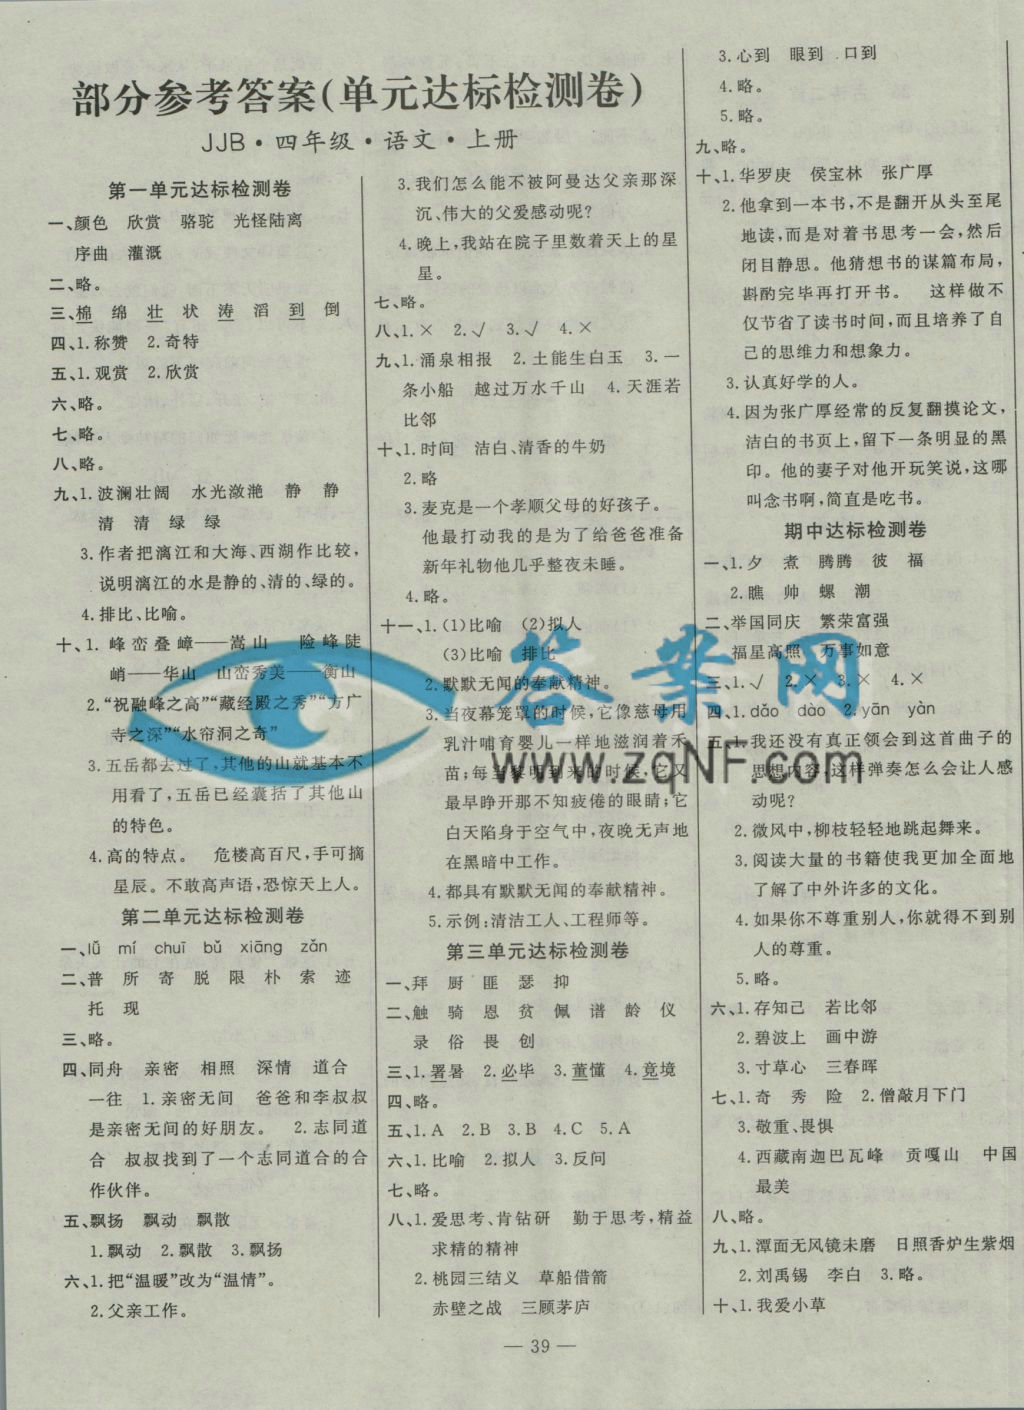 部分参考答案(单元达标检测卷)
JJB·四年级·语文·上册
第一单元达标检测卷
一、颜色 欣赏 骆驼 光怪陆离
序曲 灌溉
二、略。
三、棉 绵 壮 状 涛 滔 到 倒
四、1.称赞 2.奇特
五、1.观赏 2.欣赏
六、略。
七、略。
八、略。
九、1.波澜壮阔 水光潋滟 静 静
清 清 绿 绿
3.作者把漓江和大海、西湖作比较,
说明漓江的水是静的、清的、绿的。
4.排比、比喻。
十、1. 峰峦叠嶂——嵩山 险峰陡
峭——华山 山峦秀美——衡山
2.“祝融峰之高”“藏经殿之秀”“方广
寺之深”“水帘洞之奇”
3.五岳都去过了,其他的山就基本不
用看了,五岳已经囊括了其他山
的特色。
4.高的特点。 危楼高百尺,手可摘
星辰。不敢高声语,恐惊天上人。
第二单元达标检测卷
一、lǔ mí chuī bǔ xiāng zǎn
二、普 所 寄 脱 限 朴 索 迹
托 现
三、略。
四、同舟 亲密 相照 深情 道合
一往 1.亲密无间 爸爸和李叔叔
是亲密无间的好朋友。 2.志同道
合 叔叔找到了一个志同道合的合
作伙伴。
五、飘扬 飘动 飘散
1.飘动 2.飘散 3.飘扬
六、1.把“温暖”改为“温情”。
2.父亲工作。
3.我们怎么能不被阿曼达父亲那深
沉、伟大的父爱感动呢?
4.晚上,我站在院子里数着天上的星
星。
七、略。
八、1.× 2.√ 3.√ 4.×
九、1.涌泉相报 2.土能生白玉 3.一
条小船 越过万水千山 4.天涯若
比邻
十、1.时间 洁白、清香的牛奶
2.略
3.麦克是一个孝顺父母的好孩子。
他最打动我的是为了给爸爸准备
新年礼物他几乎整夜未睡。
4.略。
十一、1.(1)比喻 (2)拟人
(3)比喻 排比
2.默默无闻的奉献精神。
3.当夜幕笼罩的时候,它像慈母用
乳汁哺育婴儿一样地滋润着禾
苗;每当黎明到来的时候,它又
最早睁开那不知疲倦的眼睛;它
白天陷身于空气中,夜晚无声地
在黑暗中工作。
4.都具有默默无闻的奉献精神。
5.示例:清洁工人、工程师等。
第三单元达标检测卷
一、拜 厨 匪 瑟 抑
二、触 骑 恩 贫 佩 谱 龄 仪
录 俗 畏 创
三、1.署暑 2.必毕 3.董懂 4.竟境
四、略。
五、1.A 2.B 3.B 4.C 5.A
六、1.比喻 2.拟人 3.反问
七、略。
八、1.爱思考、肯钻研 勤于思考,精益
求精的精神
2.桃园三结义 草船借箭
赤壁之战 三顾茅庐
3.心到 眼到 口到
4.略。
5.略。
九、略。
十、1.华罗庚 侯宝林 张广厚
2.他拿到一本书,不是翻开从头至尾
地读,而是对着书思考一会,然后
闭目静思。他猜想书的谋篇布局,
斟酌完毕再打开书。 这样做不
仅节省了读书时间,而且培养了自
己的思维力和想象力。
3.认真好学的人。
4.因为张广厚经常的反复翻摸论文,
洁白的书页上,留下一条明显的黑
印。他的妻子对他开玩笑说,这哪
叫念书啊,简直是吃书。
期中达标检测卷
一、1.夕 煮 腾腾 彼 福
2.瞧 帅 螺 潮
二、举国同庆 繁荣富强
福星高照 万事如意
三、1.√ 2.× 3.× 4.×
四、1.dǎo dào 2.yān yàn
五、1.我还没有真正领会到这首曲子的
思想内容,这样弹奏怎么会让人感
动呢?
2.微风中,柳枝轻轻地跳起舞来。
3.阅读大量的书籍使我更加全面地
了解了中外许多的文化。
4.如果你不尊重别人,你就得不到别
人的尊重。
5.略。
六、1.存知己 若比邻
2.碧波上 画中游
3.寸草心 三春晖
七、1.奇 秀 险 2.僧敲月下门
3.敬重、畏惧
4.西藏南迦巴瓦峰 贡嘎山 中国
最美
八、略。
九、1.潭面无风镜未磨 日照香炉生紫烟
2.刘禹锡 李白 3.略。
十、1.我爱小草
— 39 —
答案网
www.zqNF.com